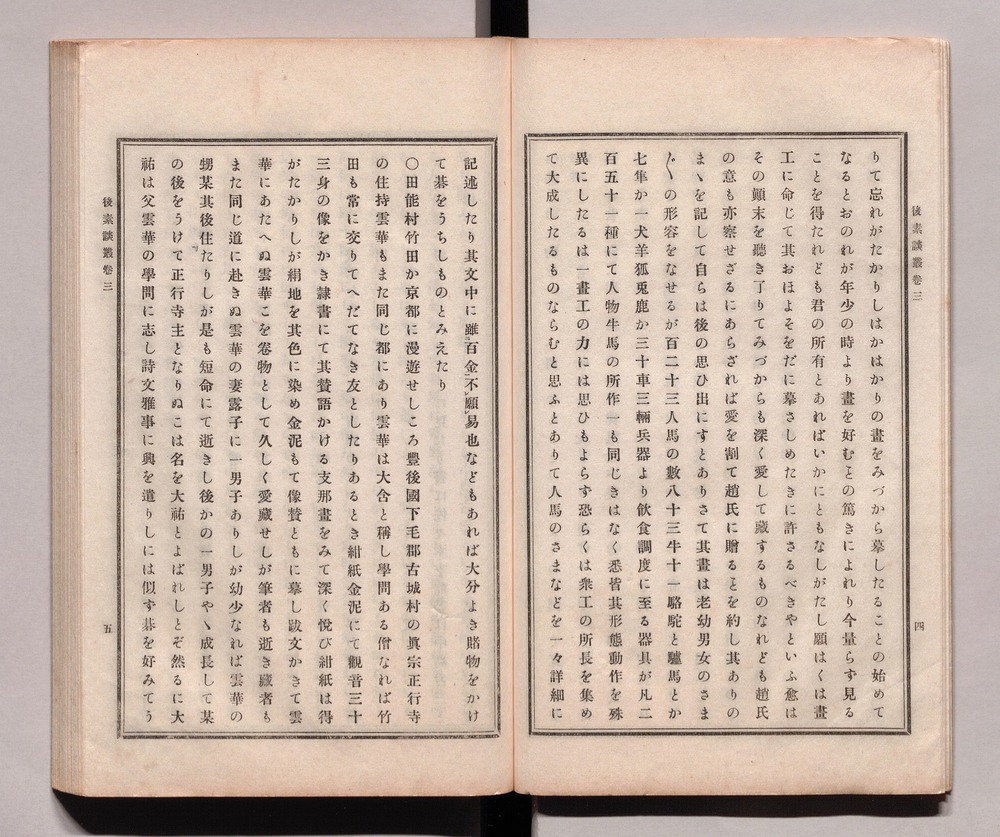 後素談叢卷三
四
りて忘れがたかりしはかはかりの畫をみづから摹したることの始めて
なるとおのれが年少の時より畫を好むとの篤きによれり今量らず見る
ことを得たれども君の所有とあればいかにともなしがたし願はくは畫
工に命じて其おほよそをだに摹さしめたきに許さるべきやといふ愈は
その顛末を聽き了りてみづからも深く愛して藏するものなれども趙氏
の意も亦察せざるにあらざれば愛を割て趙氏に贈ることを約し其ありの
まゝを記して自らは後の思ひ出にすとありさて其畫は老幼男女のさま
〴〵の形容をなせるが百二十三人馬の數八十三牛十一駱駝と驢馬とか
七隼か一犬羊狐兎鹿か三十車三輛兵器より飮食調度に至る器具が凡二
百五十一種にて人物牛馬の所作一も同じきはなく悉皆其形態動作を殊
異にしたるは一畫工の力には思ひもよらず恐らくは衆工の所長を集め
て大成したるものならむと思ふとありて人馬のさまなどを一々詳細に
記述したり其文中に雖百金不願易也などもあれば大分よき賭物をかけ
て碁をうちしものとみえたり
〇田能村竹田か京都に漫遊せしころ豐後國下毛郡古城村の眞宗正行寺
の住持雲華もまた同じ都にあり雲華は大含と稱し學問ある僧なれば竹
田も常に交りてへだてなき友としたりあるとき紺紙金泥にて觀音三十
三身の像をかき隷書にて其贊語かける支那畫をみて深く悅び紺紙は得
がたかりしが絹地を其色に染め金泥もて像贊ともに摹し跋文かきて雲
華にあたへぬ雲華こを卷物として久しく愛藏せしが筆者も逝き藏者も
また同じ道に赴きぬ雲華の妻露子に一男子ありしが幼少なれば雲華の
甥某其後住たりしが是も短命にて逝きし後かの一男子やゝ成長して某
の後をうけて正行寺主となりぬこは名を大祐とよばれしとぞ然るに大
祐は父雲華の學問に志し詩文雅事に興を遣りしには似ず碁を好みてう
後素談叢卷三
五